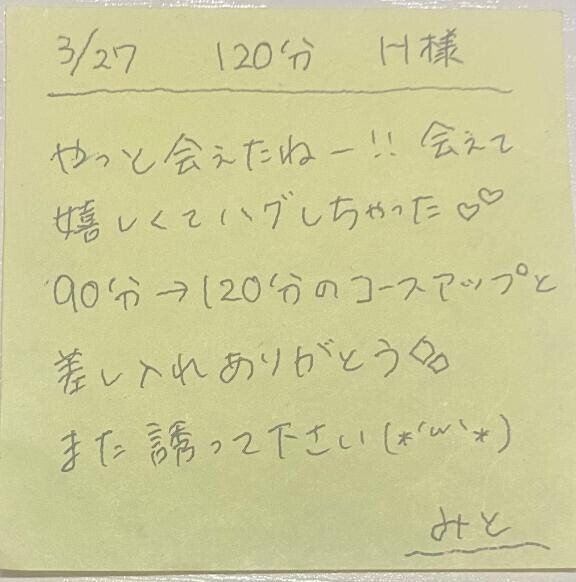 3/27 120分 H様
やっと会えたねー!! 会えて
嬉しくてハグしちゃった♡♡
90分→120分のコースアップと
差し入れありがとう◇◇
また誘って下さい(*´ω`*)
みと